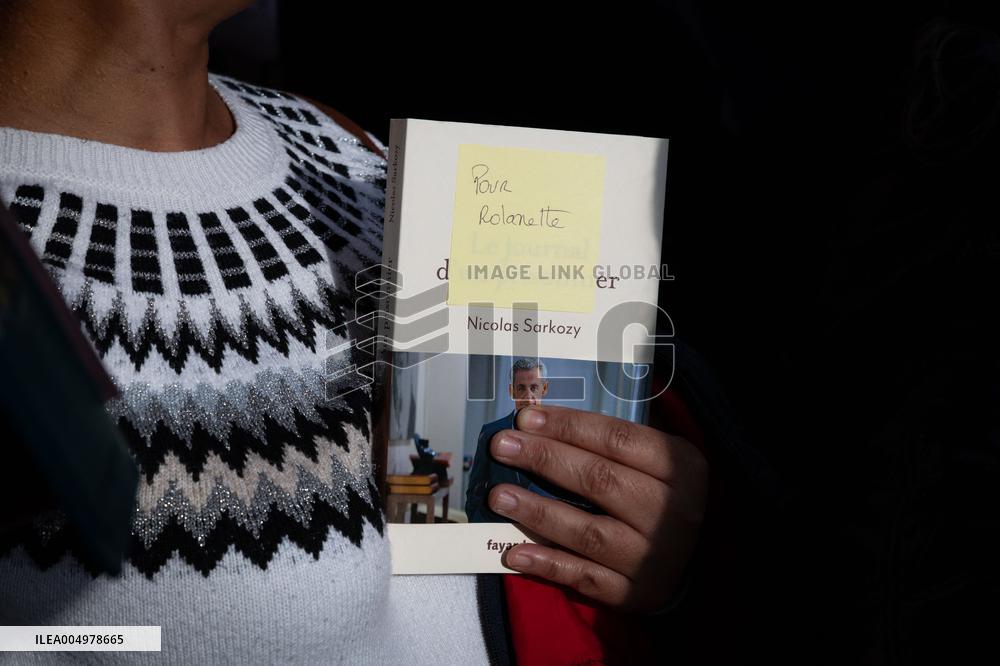 Pour
Rolanette
Le journal
d er
Nicolas Sarkozy
fayard
Nicolas Sarkozy
IMAGE LINK GLOBAL
ILG
ILEA004978665